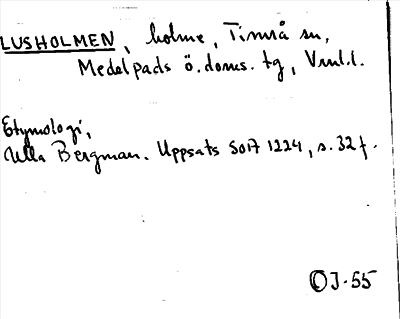 LUSHOLMEN, holme, Timrå sn,
Medelpads ö. doms. tg, Vnl.l.
Etymologi,
Ulla Bergman. Uppsats SOIT 1224, s. 32 f.
OJ-55